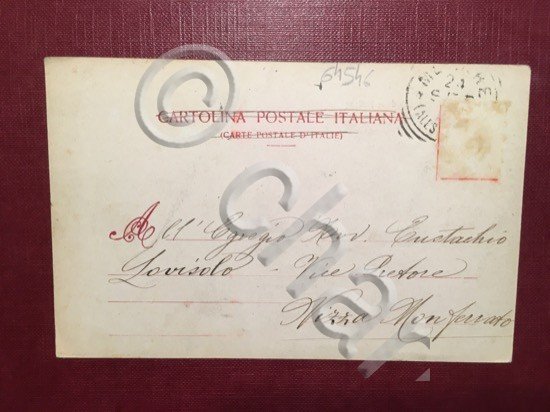 64546
CARTOLINA POSTALE ITALIANA
(CARTE POSTALE D'ITALIE)
All' Egregio Avv. Eustachio
Lovisolo - Vice Pretore
Nizza Monferrato
© char